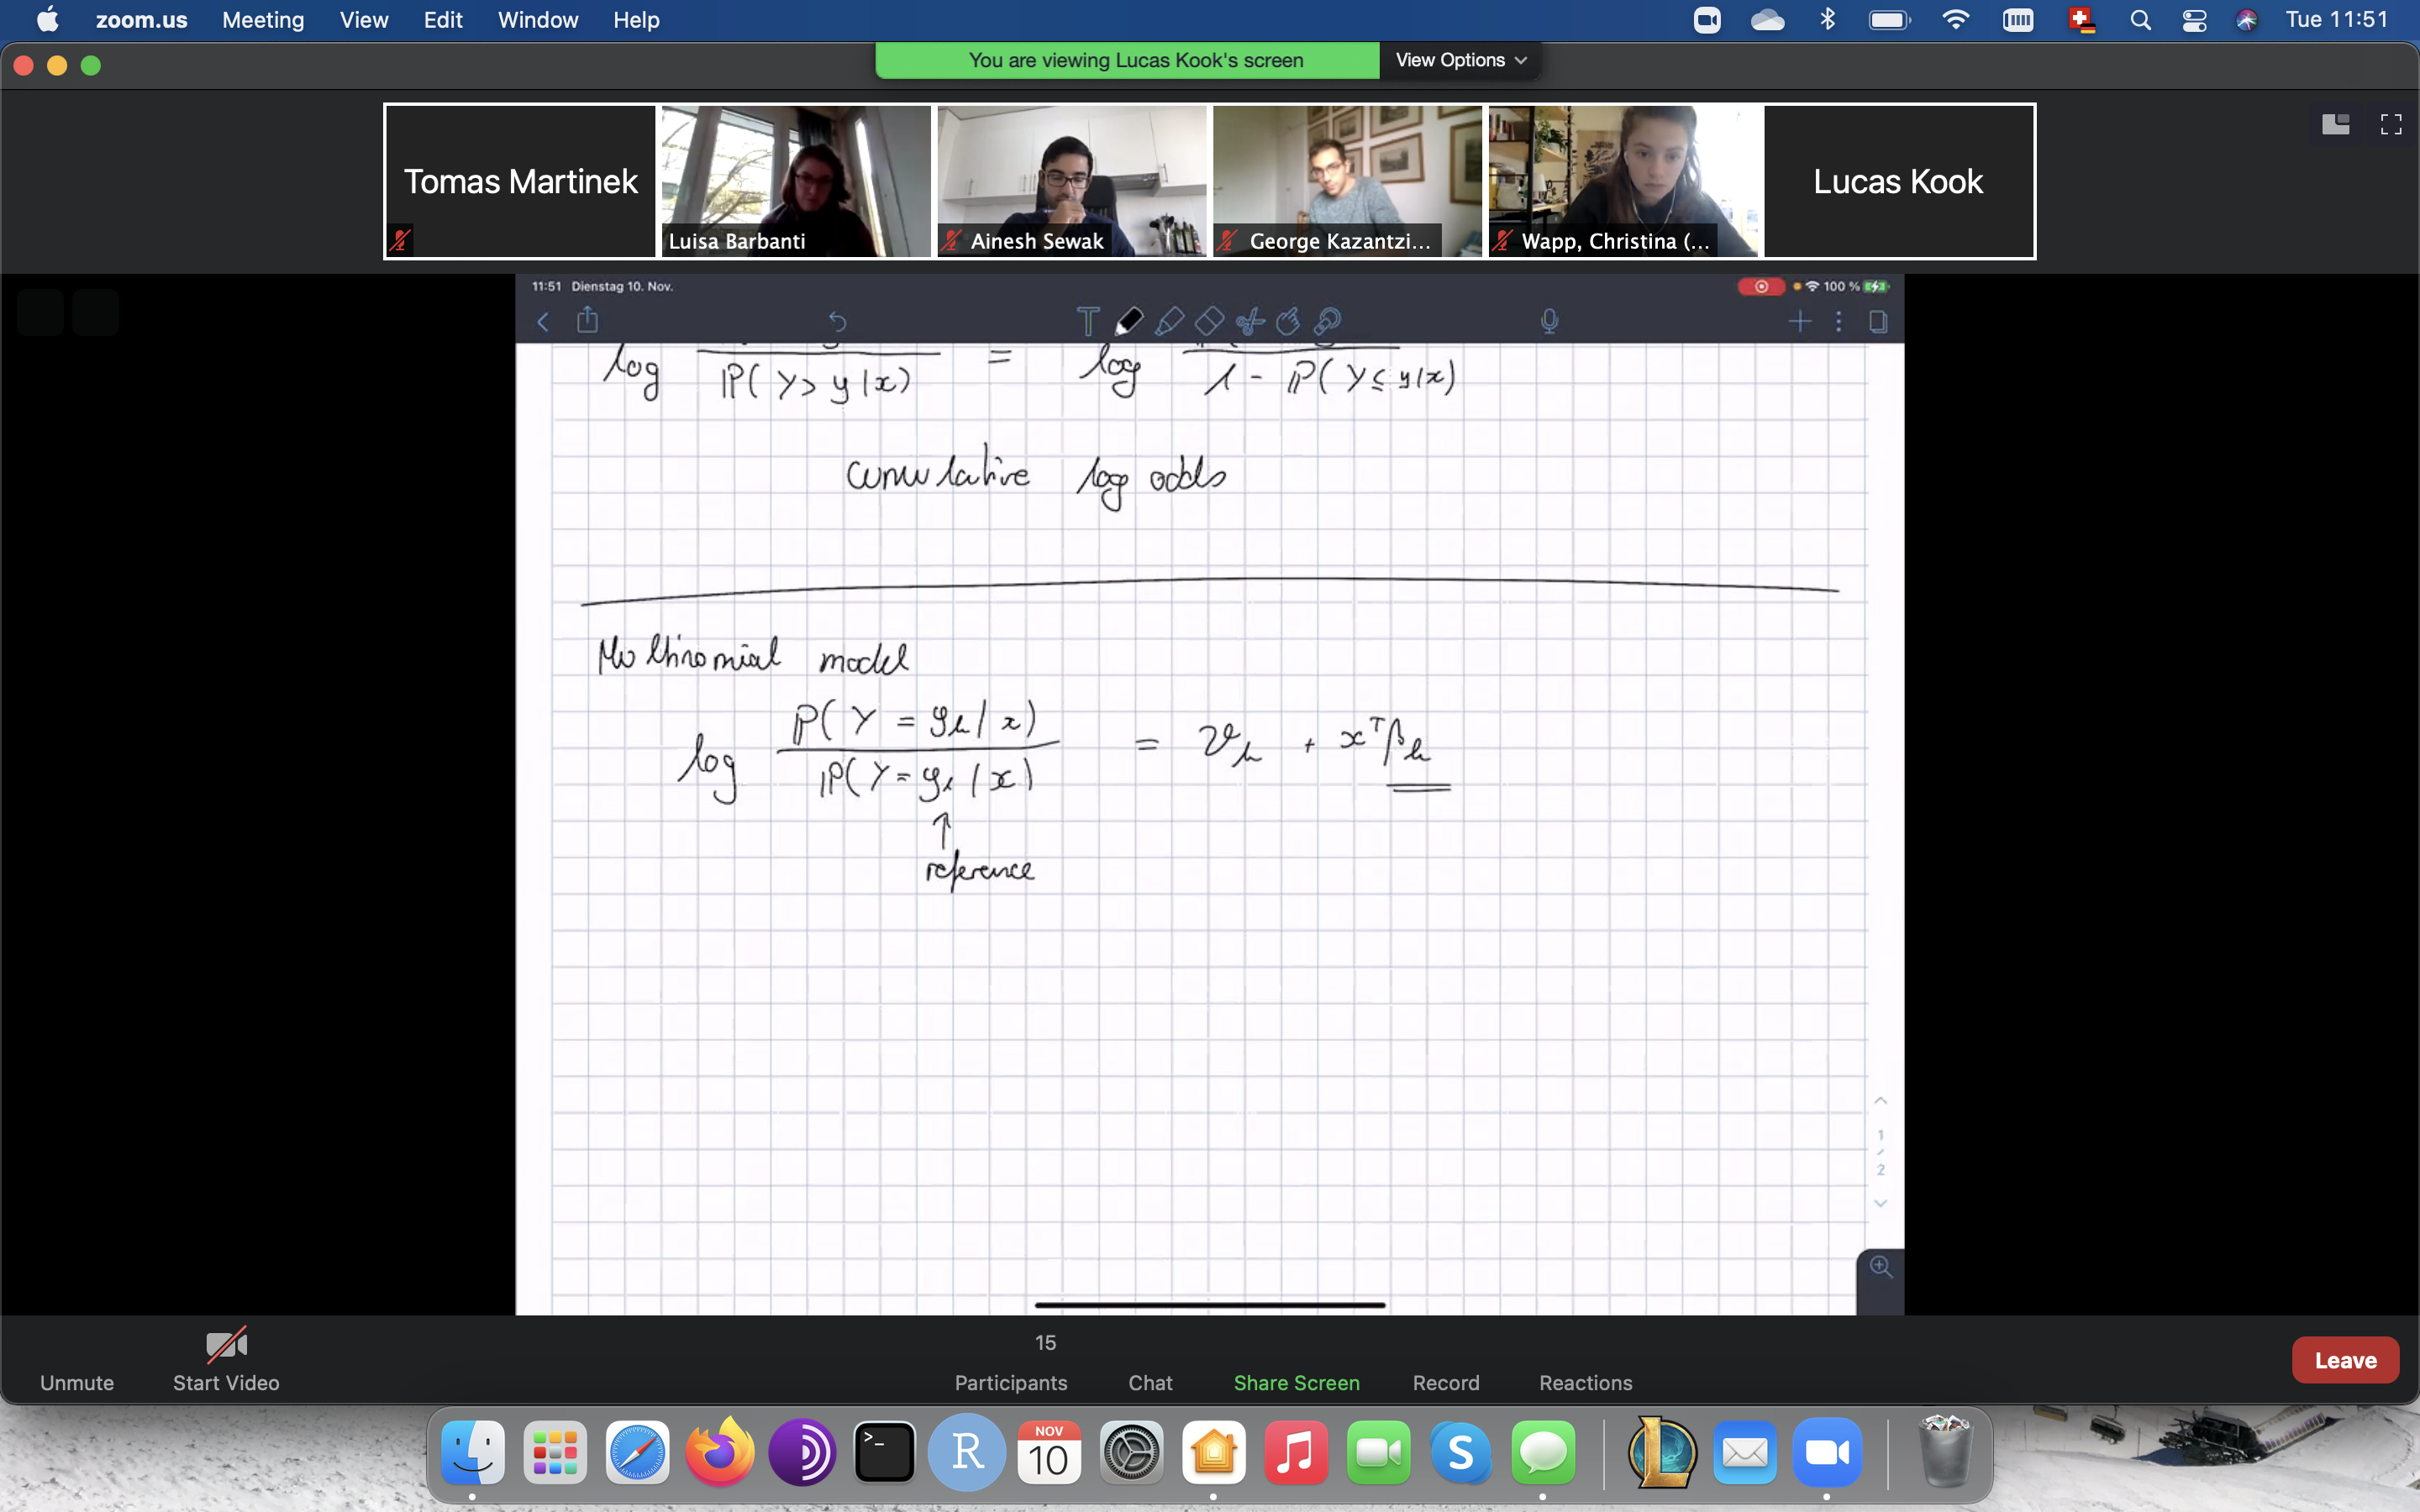 zoom.us Meeting View Edit Window Help Tue 11:51
You are viewing Lucas Kook's screen View Options
Tomas Martinek
Luisa Barbanti
Ainesh Sewak
George Kazantzi...
Wapp, Christina (...
Lucas Kook
11:51 Dienstag 10. Nov. 100 %
log P(Y > y | x) = log 1 - P(Y ≤ y | x)
cumulative log odds
Multinomial model
log P(Y = y_k | x) / P(Y = y_1 | x) = ϑ_k + x^T β_k
↑
reference
1 / 2
15
Unmute Start Video Participants Chat Share Screen Record Reactions Leave
NOV
10